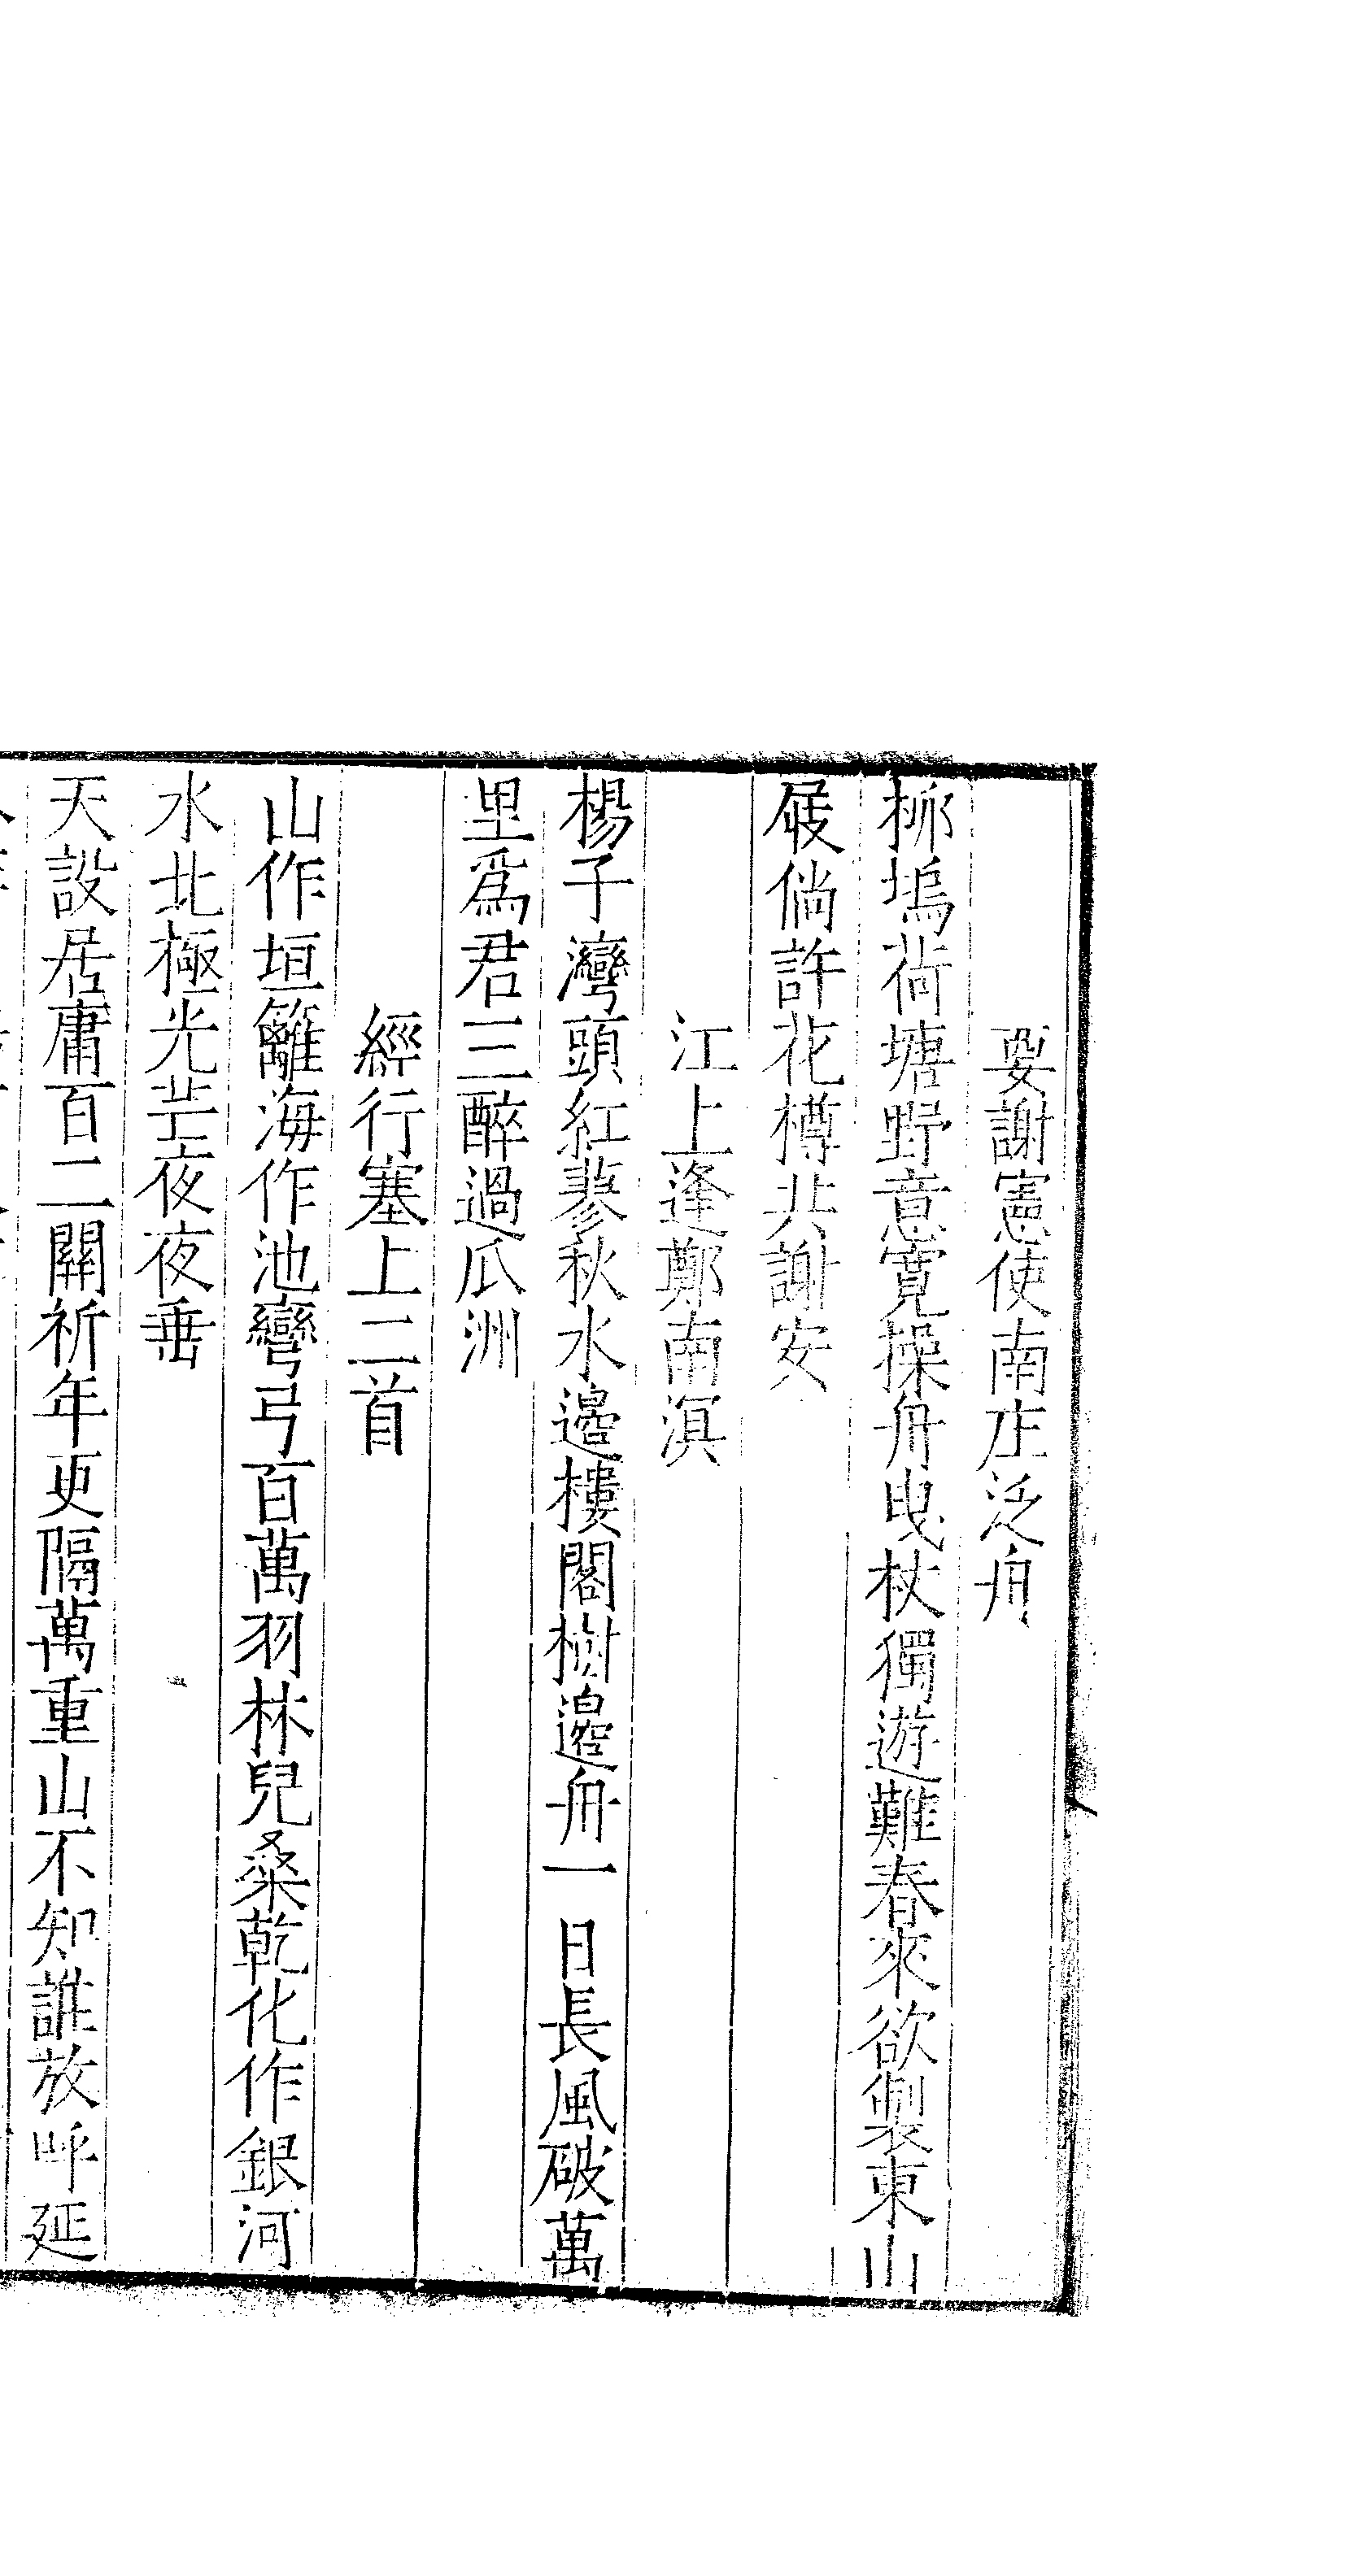 要謝憲使南庄泛舟
柳塢荷塘野意寬操舟曳杖獨遊難春來欲製東山
屐倘許花樽共謝安
江上逢鄭南溟
楊子灣頭紅蓼秋水邊樓閣樹邊舟一日長風破萬
里爲君三醉過瓜洲
經行塞上二首
山作垣籬海作池彎弓百萬羽林兒桑乾化作銀河
水北極光芒夜夜垂
天設居庸百二關祈年更隔萬重山不知誰放呼延